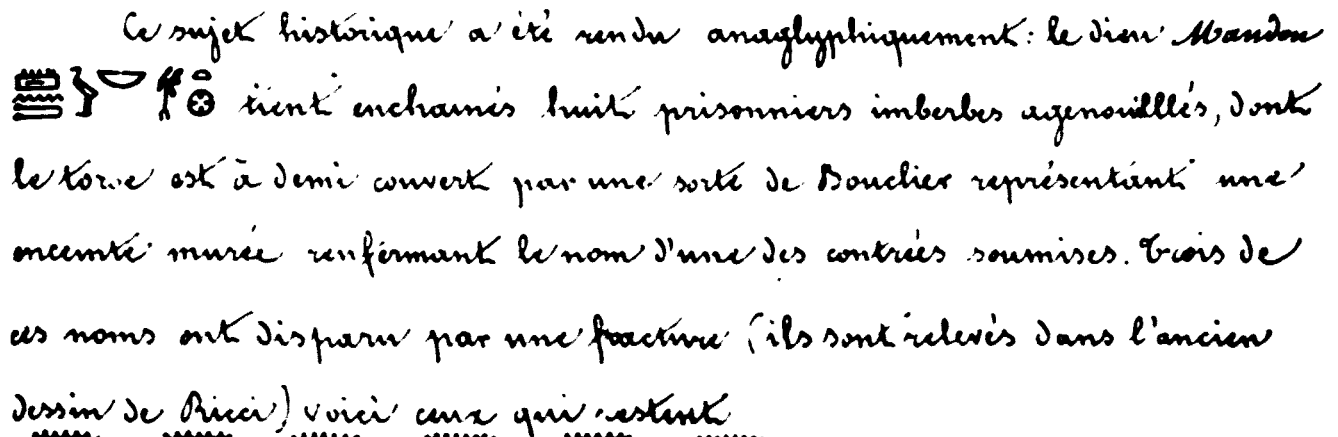 Ce sujet historique a été rendu anaglyphiquement: le dieu Mandou
tient enchainés huit prisonniers imberbes agenouilllés, dont
le torse est à demi couvert par une sorte de Bouclier représentant une
enceinte murée renfermant le nom d'une des contrées soumises. Trois de
ces noms ont disparu par une fracture (ils sont relevés dans l'ancien
dessin de Ricci) voici ceux qui restent